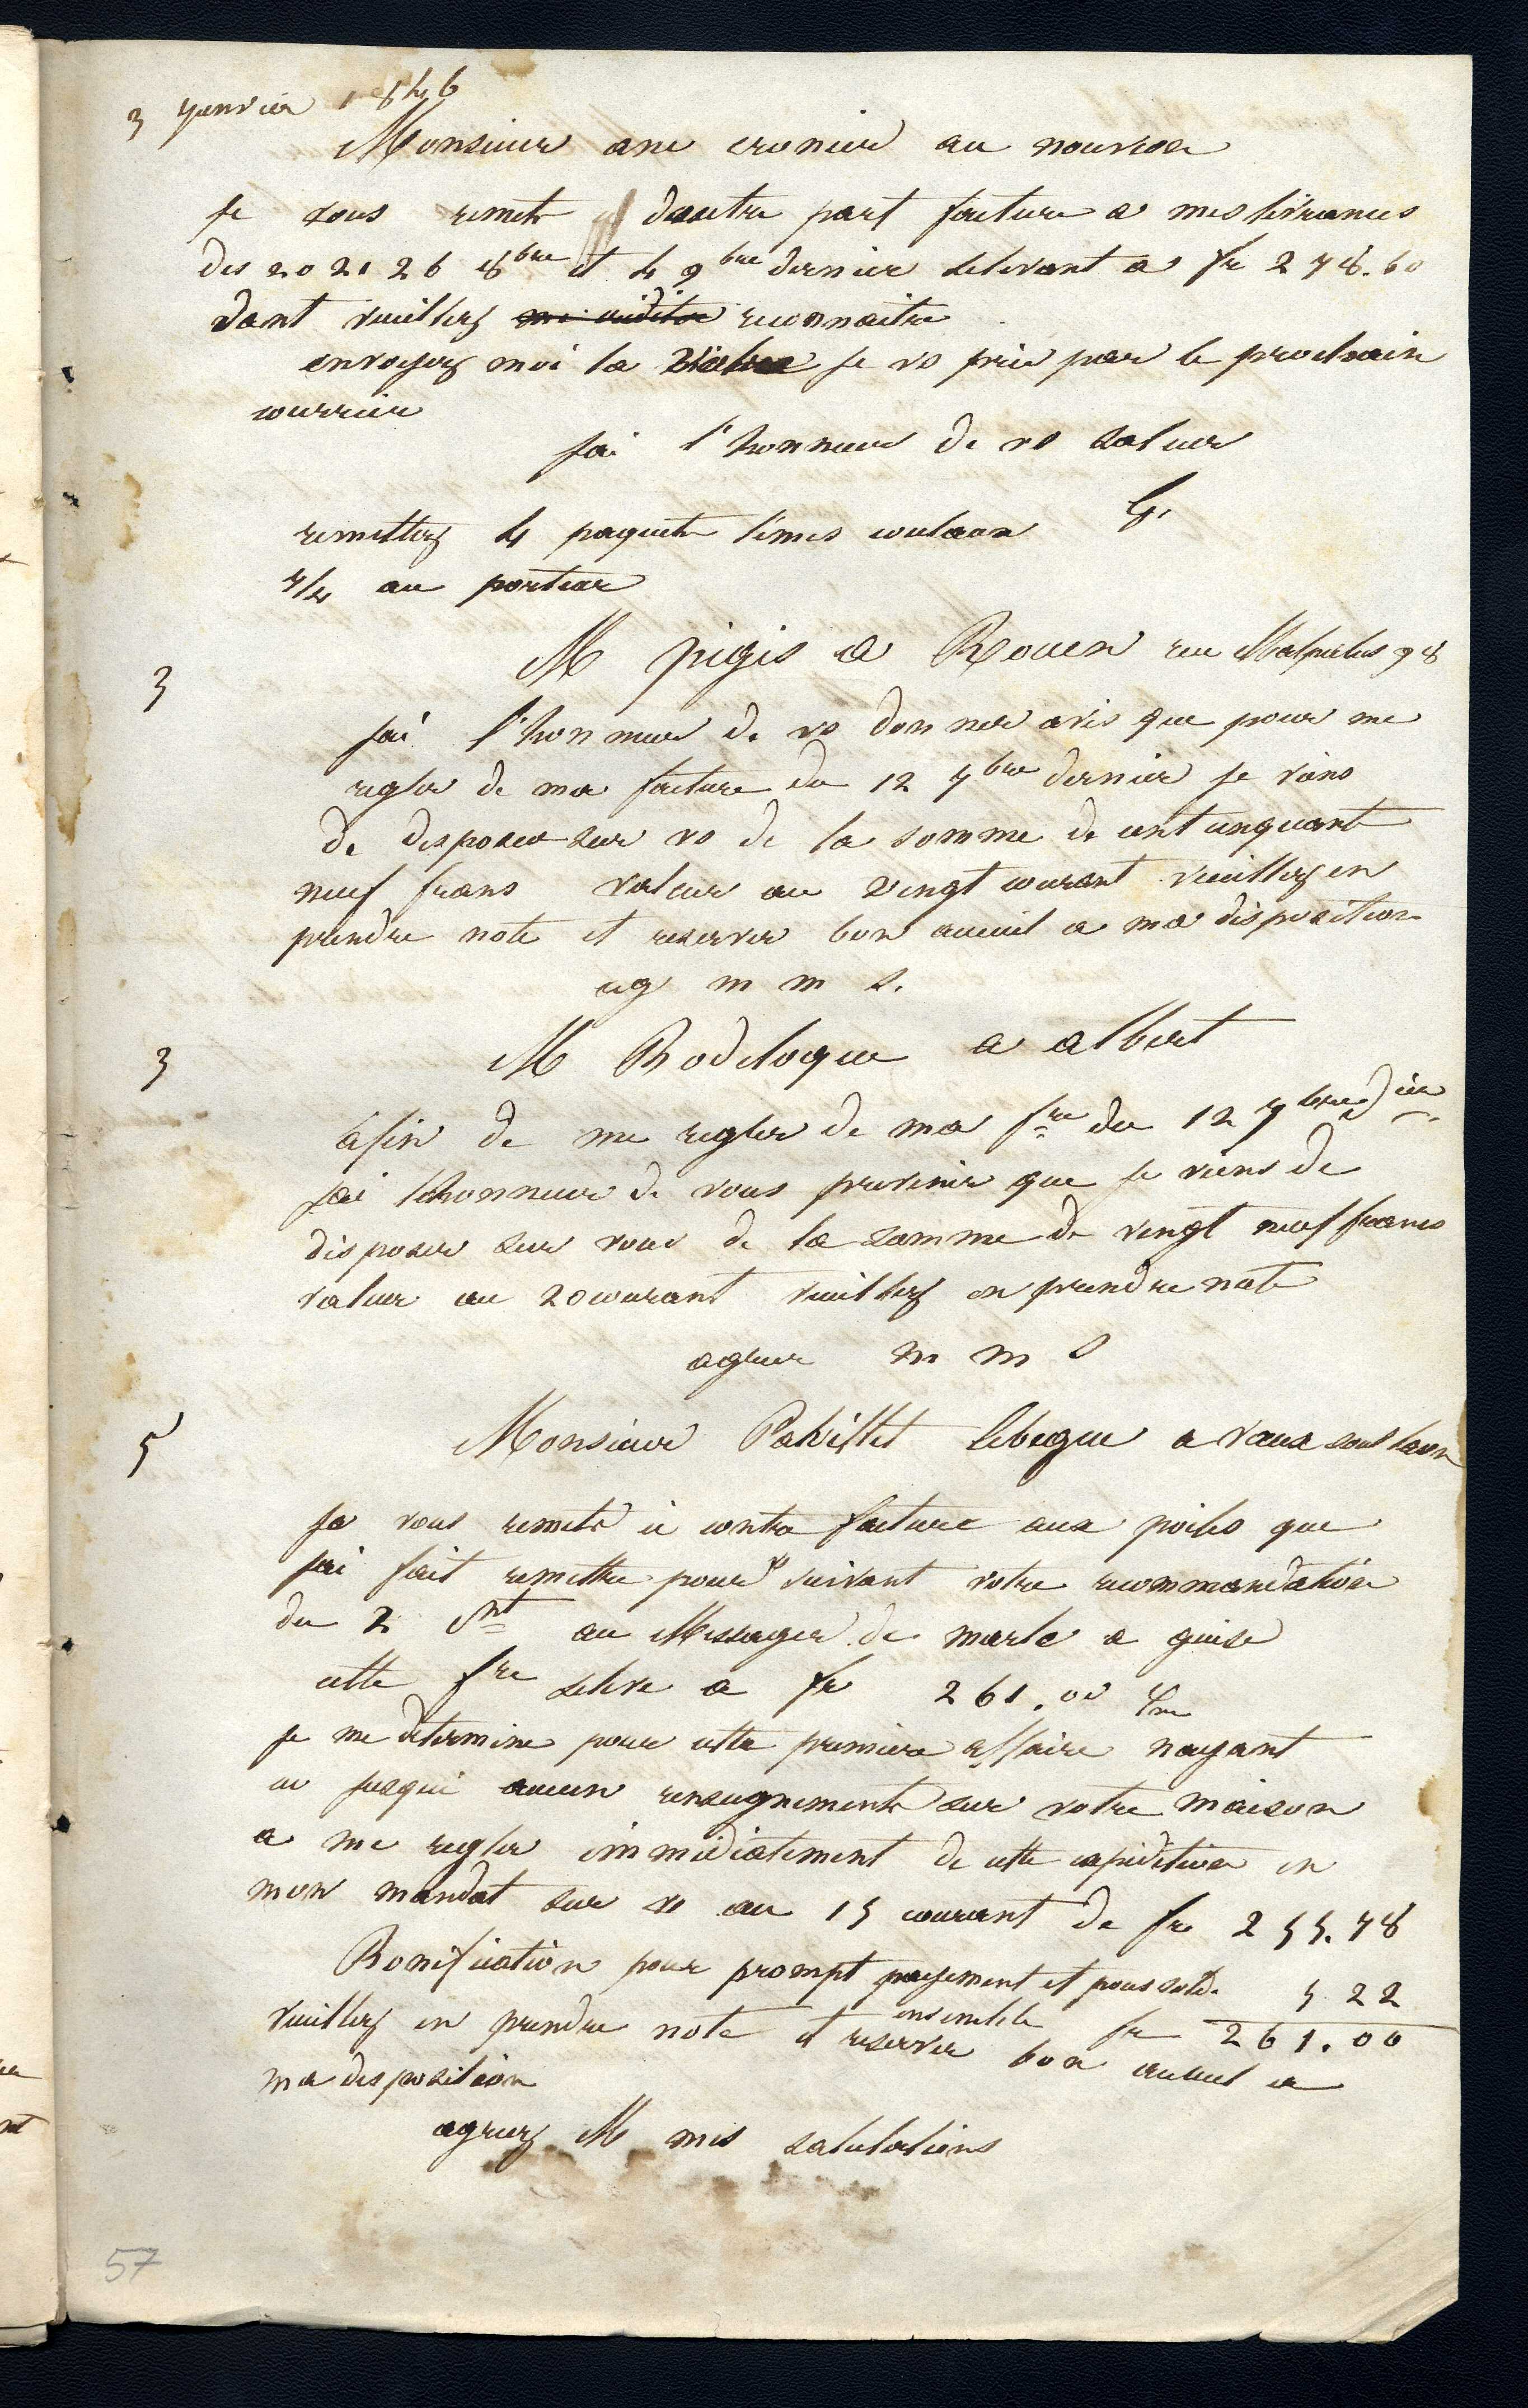 3 janvier 1846
Monsieur ane cronier au nouvion
je vous remets d'autre part facture a mes livrances
des 20 21 26 8bre et 4 9bre dernier selevant a fr 278.60
dont veuillez me crediter reconnaitre
envoyez moi la je vs prie par le prochain
courrier
jai l'honneur de vs saluer
remettez 4 paquets limes coulaon G.
7/4 au porteur
3 M pigis a Rouen rue Malpalus 98
jai l'honneur de vs donner avis que pour me
regler de ma facture du 12 7bre dernier je viens
de disposer sur vs de la somme de cent cinquant
neuf francs valeur au vingt courant veuillez en
prendre note et reserver bon acceuil a ma disposition
ag m m s.
3 M Rodeloque a albert
afin de me regler de ma fre du 12 7bre dier
jai lhonneur de vous prevenir que je viens de
disposer sur vous de la somme de vingt neuf francs
valeur au 20 courant veuillez en prendre note
agreer m m s
5 Monsieur Pakillet lebegue a vaux sous laon
je vous remets ci contre facture aux poiles que
jai fait remettre pour vs suivant votre recommandation
du 2 ct au Messager de marle a guise
cette fre seleve a fr 261.00
je me determine pour cette premiere affaire nayant
eu jusqui aucun renseignements sur votre maison
a me regler immediatement de cette expedition en
mon mandat sur vs au 15 courant de fr 255.78
Bonification pour prompt payement et pour solde 5 22
ensemble fr 261.00
veuillez en prendre note et reserver bon acceuil a
ma disposition
agreez M mes salutations
57